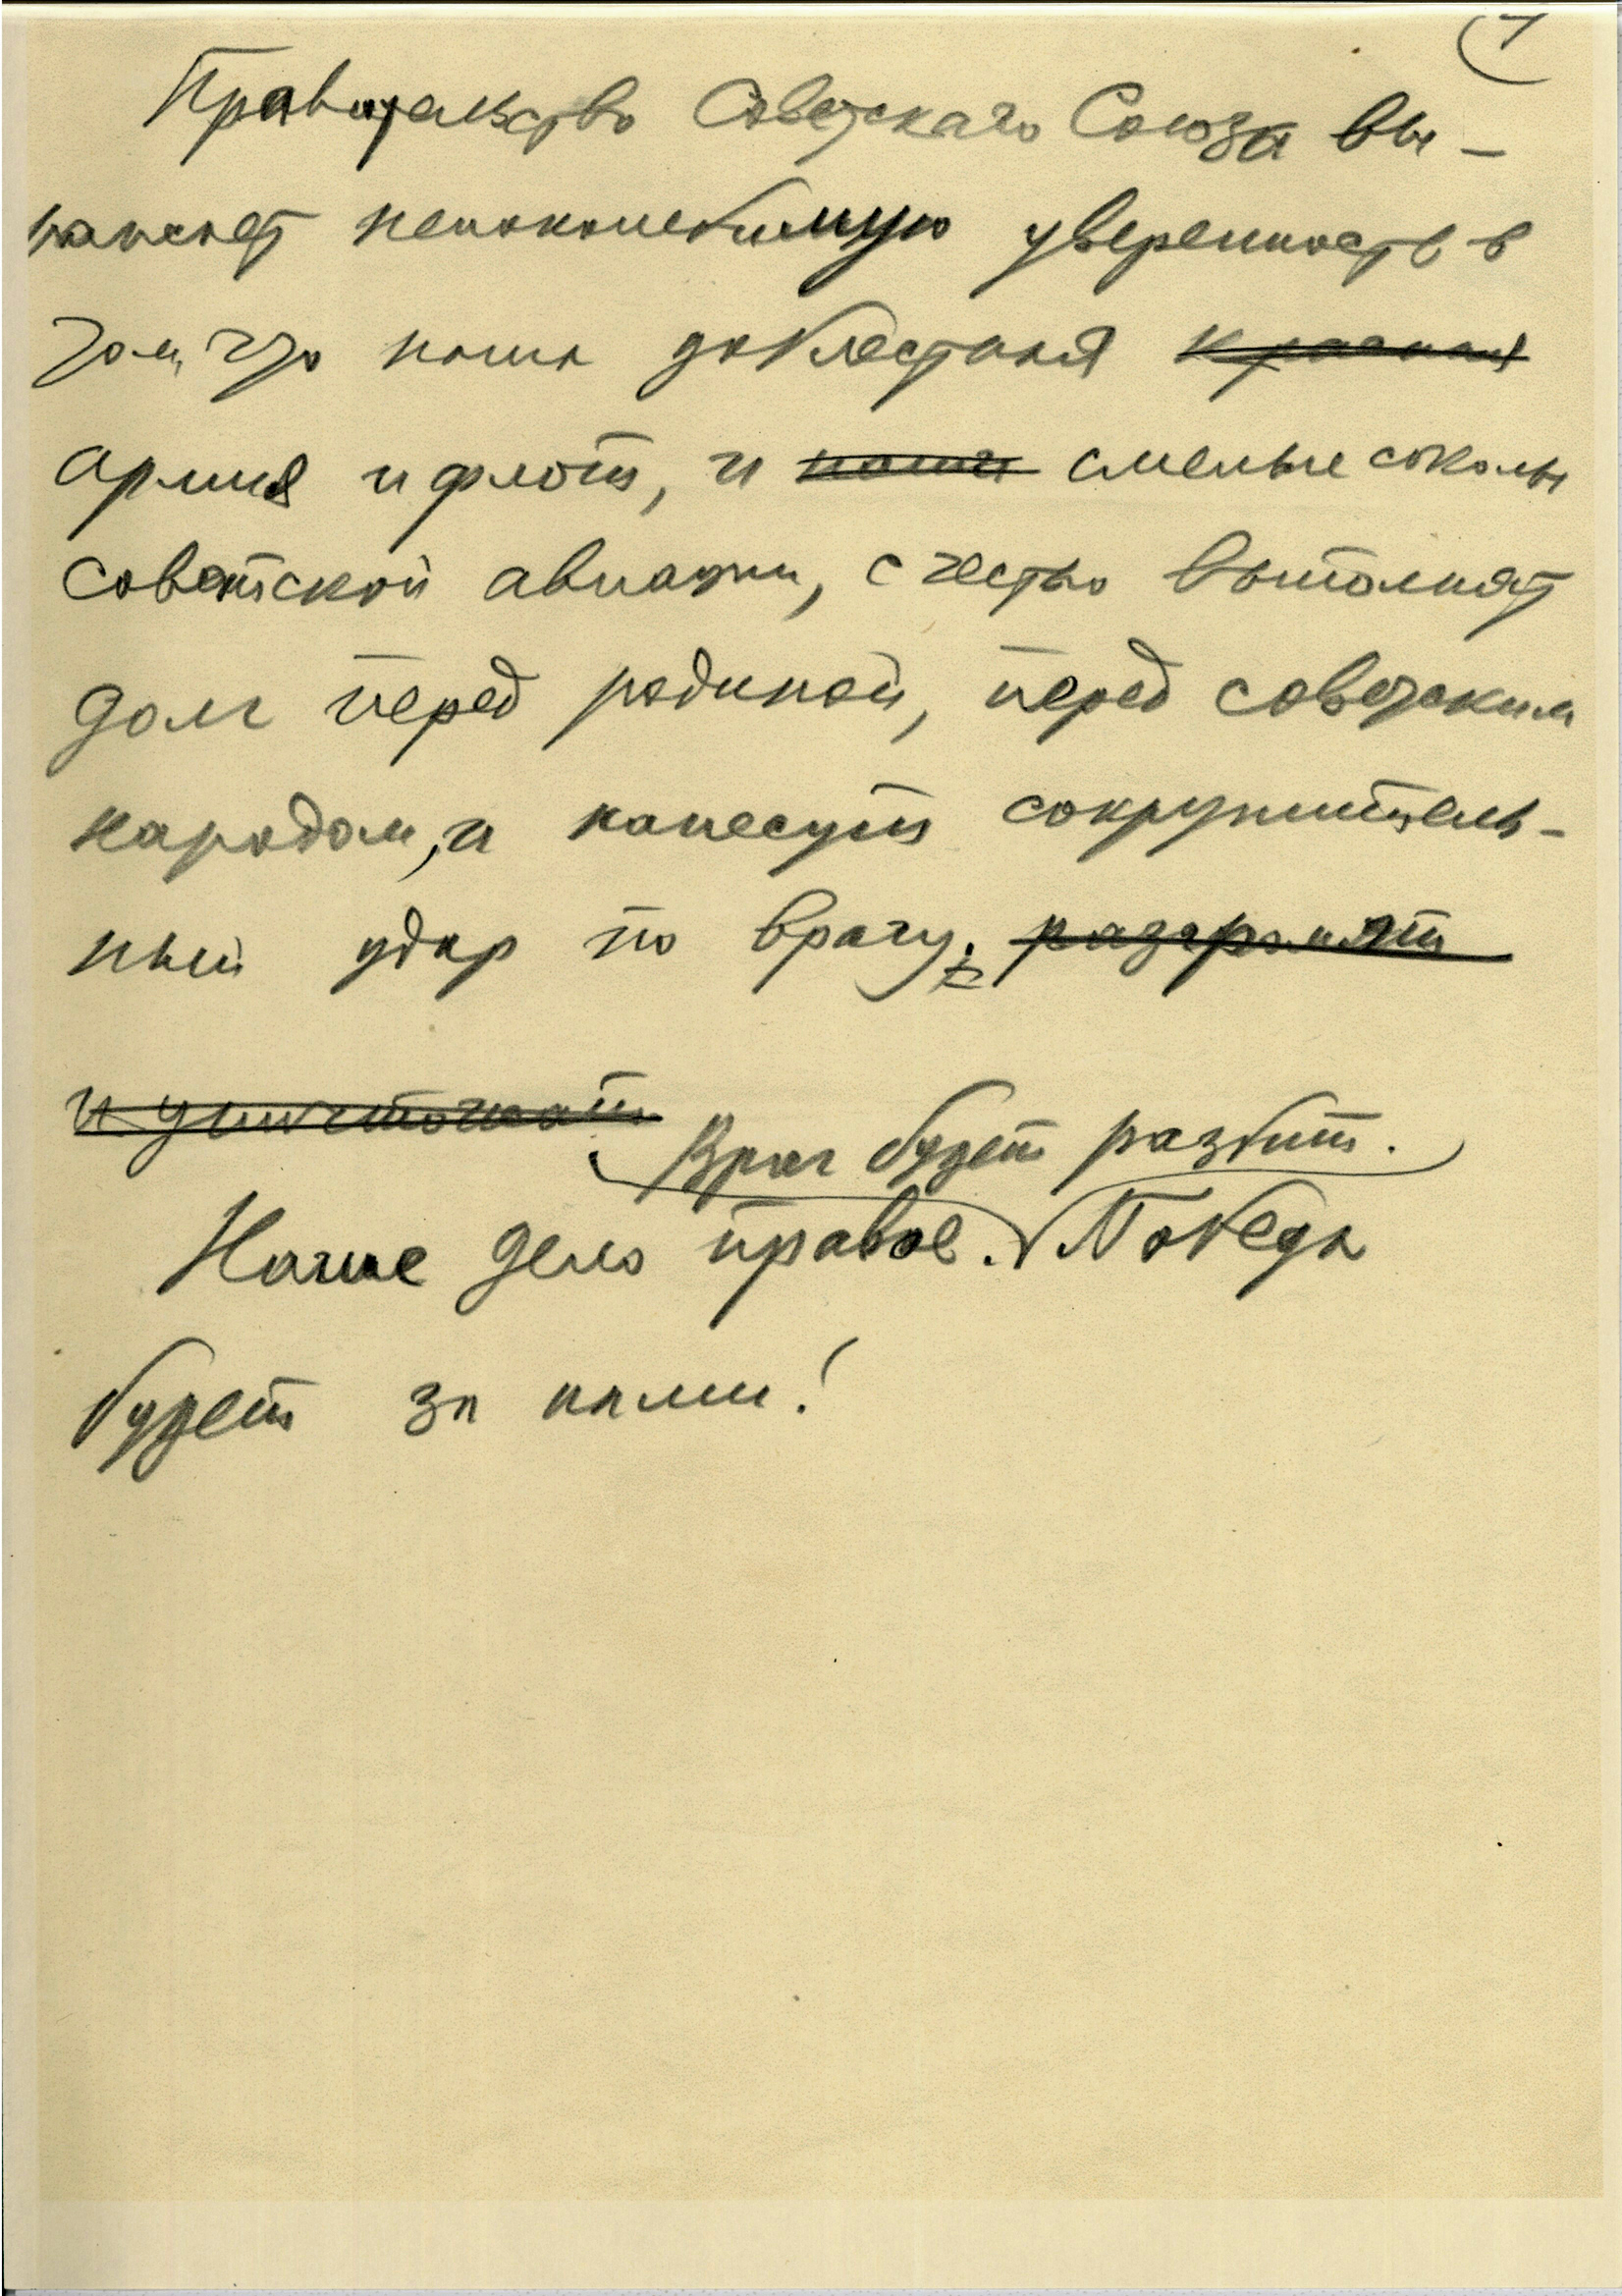 7
Правительство Советского Союза вы-
ражает непоколебимую уверенность в
том, что наша доблестная красная
армия и флот, и наши смелые соколы
советской авиации, с честью выполнят
долг перед родиной, перед советским
народом, и нанесут сокрушитель-
ный удар по врагу. разгромят
и уничтожат
Враг будет разбит.
Наше дело правое. Победа
будет за нами!